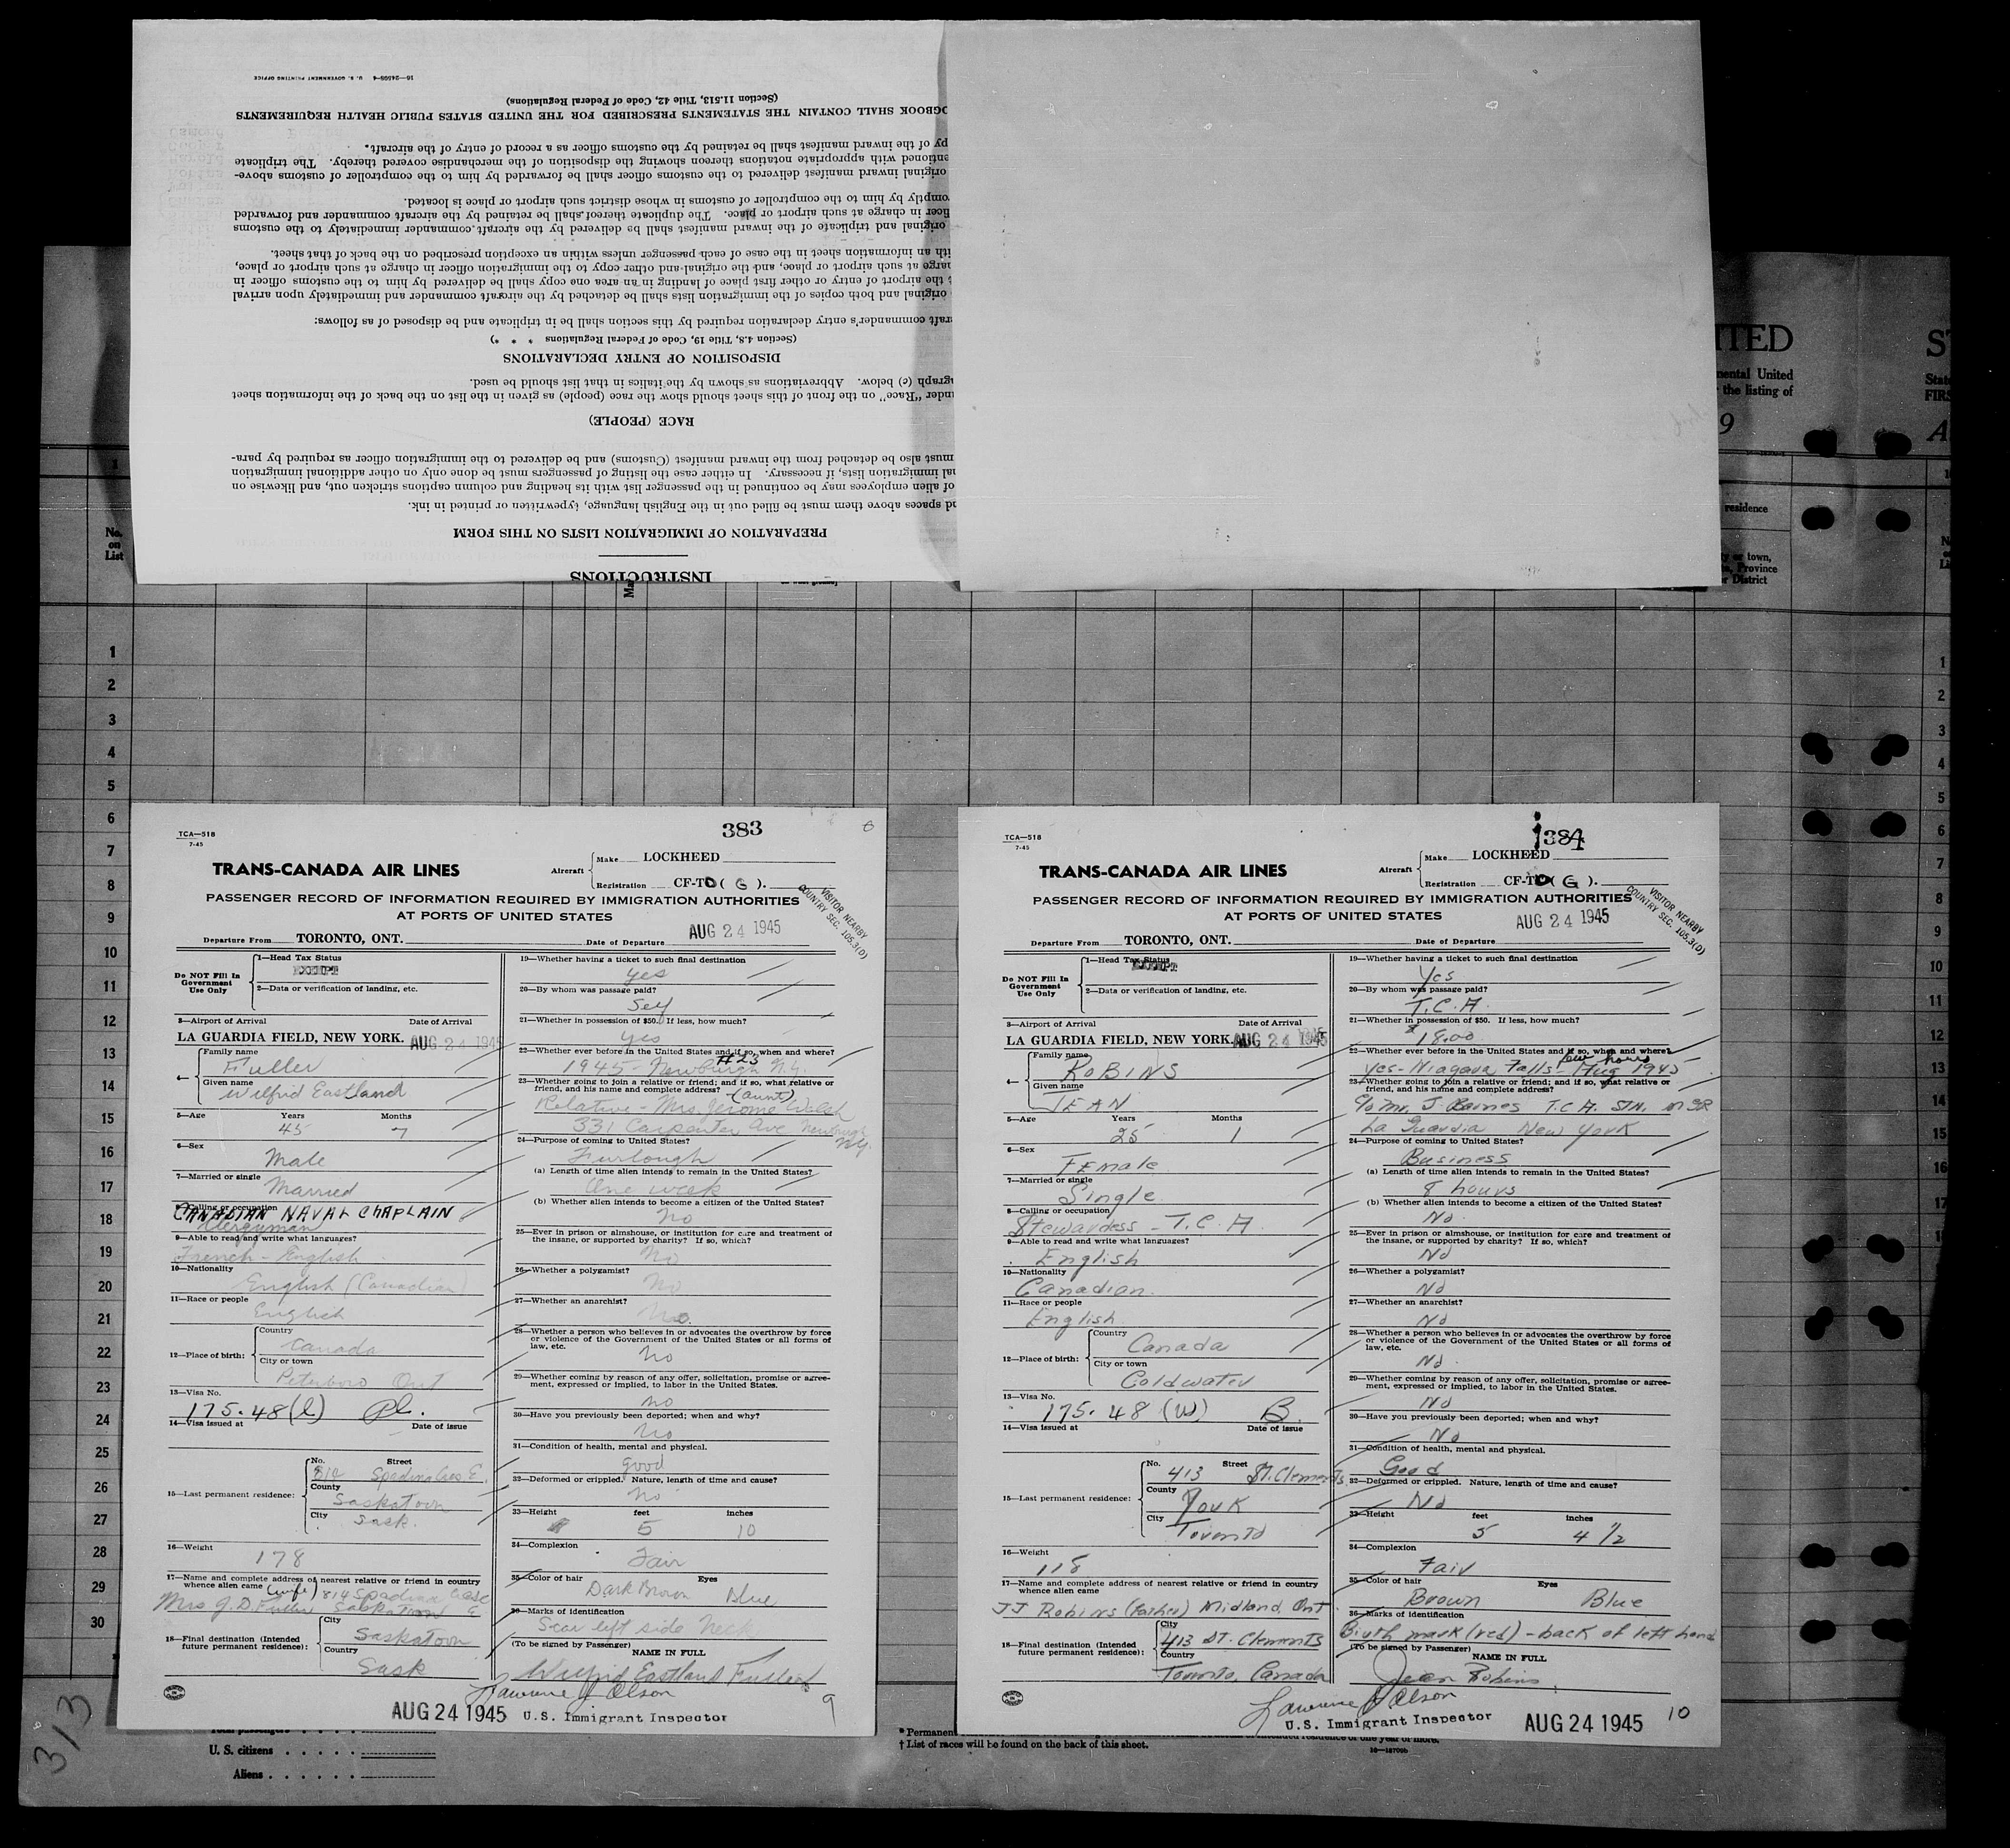 INSTRUCTIONS
PREPARATION OF IMMIGRATION LISTS ON THIS FORM
nd spaces above them must be filled out in the English language, typewritten or printed in ink.
of alien employees may be continued in the passenger list with its heading and column captions stricken out, and likewise on
nal immigration lists, if necessary. In either case the listing of passengers must be done only on other additional immigration
must also be detached from the inward manifest (Customs) and be delivered to the immigration officer as required by para-
RACE (PEOPLE)
under "Race" on the front of this sheet should show the race (people) as given in the list on the back of the information sheet
agraph (c) below. Abbreviations as shown by the italics in that list should be used.
DISPOSITION OF ENTRY DECLARATIONS
(Section 4.8, Title 19, Code of Federal Regulations * * *)
raft commander's entry declaration required by this section shall be in triplicate and be disposed of as follows:
original and both copies of the immigration lists shall be detached by the aircraft commander and immediately upon arrival
t the airport of entry or other first place of landing in an area one copy shall be delivered by him to the customs officer in
arge at such airport or place, and the original and other copy to the immigration officer in charge at such airport or place,
ith an information sheet in the case of each passenger unless within an exception prescribed on the back of that sheet.
original and triplicate of the inward manifest shall be delivered by the aircraft commander immediately to the customs
ficer in charge at such airport or place. The duplicate thereof shall be retained by the aircraft commander and forwarded
omptly by him to the comptroller of customs in whose district such airport or place is located.
original inward manifest delivered to the customs officer shall be forwarded by him to the comptroller of customs above-
entioned with appropriate notations thereon showing the disposition of the merchandise covered thereby. The triplicate
py of the inward manifest shall be retained by the customs officer as a record of entry of the aircraft.
OGBOOK SHALL CONTAIN THE STATEMENTS PRESCRIBED FOR THE UNITED STATES PUBLIC HEALTH REQUIREMENTS
(Section 11.513, Title 42, Code of Federal Regulations)
16—24566-4 U. S. GOVERNMENT PRINTING OFFICE
ITED
nental United
the listing of
9
residence
y or town,
Province
or District
ST
State
FIRS
A
No. on List
1
2
3
4
5
6
7
8
9
10
11
12
13
14
15
16
17
18
19
20
21
22
23
24
25
26
27
28
29
30
TCA—518
7-45
383
TRANS-CANADA AIR LINES
Aircraft Make LOCKHEED
Registration CF-TC ( G ).
PASSENGER RECORD OF INFORMATION REQUIRED BY IMMIGRATION AUTHORITIES
AT PORTS OF UNITED STATES
VISITOR NEARBY
COUNTRY SEC. 105.3(D)
Departure From TORONTO, ONT. Date of Departure AUG 24 1945
Do NOT Fill In Government Use Only
1—Head Tax Status
EXEMPT
2—Data or verification of landing, etc.
3—Airport of Arrival Date of Arrival
LA GUARDIA FIELD, NEW YORK. AUG 24 1945
4— Family name
Fuller
Given name
Wilfrid Eastland
5—Age Years 45 Months 7
6—Sex
Male
7—Married or single
Married
8—Calling or occupation
CANADIAN NAVAL CHAPLAIN
Clergyman
9—Able to read and write what languages?
French - English
10—Nationality
English (Canadian)
11—Race or people
English
12—Place of birth: Country
Canada
City or town
Peterboro Ont
13—Visa No.
175.48(l) Pl.
14—Visa issued at Date of issue
15—Last permanent residence: No. Street
Spadina Cres E.
County
Saskatoon
City
Sask.
16—Weight
178
17—Name and complete address of nearest relative or friend in country whence alien came
(wife) 814 Spadina Cres
Mrs J. D. Fuller Saskatoon E
18—Final destination (Intended future permanent residence): City
Saskatoon
Country
Sask
19—Whether having a ticket to such final destination
yes
20—By whom was passage paid?
Self
21—Whether in possession of $50. If less, how much?
yes
22—Whether ever before in the United States and if so, when and where?
#23
1945 - Newburgh N.Y.
23—Whether going to join a relative or friend; and if so, what relative or friend, and his name and complete address?
(aunt)
Relative - Mrs. Jerome Walsh
331 Carpenter Ave Newburgh N.Y.
24—Purpose of coming to United States?
Furlough
(a) Length of time alien intends to remain in the United States?
One week
(b) Whether alien intends to become a citizen of the United States?
No
25—Ever in prison or almshouse, or institution for care and treatment of the insane, or supported by charity? If so, which?
No
26—Whether a polygamist?
No
27—Whether an anarchist?
No.
28—Whether a person who believes in or advocates the overthrow by force or violence of the Government of the United States or all forms of law, etc.
No
29—Whether coming by reason of any offer, solicitation, promise or agreement, expressed or implied, to labor in the United States.
No
30—Have you previously been deported; when and why?
No
31—Condition of health, mental and physical.
good
32—Deformed or crippled. Nature, length of time and cause?
No
33—Height feet 5 inches 10
34—Complexion
Fair
35—Color of hair Dark Brown Eyes Blue
36—Marks of identification
Scar left side Neck
(To be signed by Passenger) NAME IN FULL
Wilfrid Eastland Fuller
Lawrence J Olson
AUG 24 1945 U.S. Immigrant Inspector
9
TCA—518
7-45
384
TRANS-CANADA AIR LINES
Aircraft Make LOCKHEED
Registration CF-TC ( G ).
PASSENGER RECORD OF INFORMATION REQUIRED BY IMMIGRATION AUTHORITIES
AT PORTS OF UNITED STATES
VISITOR NEARBY
COUNTRY SEC. 105.3(D)
Departure From TORONTO, ONT. Date of Departure AUG 24 1945
Do NOT Fill In Government Use Only
1—Head Tax Status
EXEMPT
2—Data or verification of landing, etc.
3—Airport of Arrival Date of Arrival
LA GUARDIA FIELD, NEW YORK. AUG 24 1945
4— Family name
ROBINS
Given name
JEAN
5—Age Years 25 Months 1
6—Sex
Female
7—Married or single
Single
8—Calling or occupation
Stewardess - T.C.A.
9—Able to read and write what languages?
English
10—Nationality
Canadian.
11—Race or people
English
12—Place of birth: Country
Canada
City or town
Coldwater
13—Visa No.
175.48 (W) B.
14—Visa issued at Date of issue
15—Last permanent residence: No. 413 Street St. Clements
County
York
City
Toronto
16—Weight
118
17—Name and complete address of nearest relative or friend in country whence alien came
JJ Robins (father) Midland, Ont
18—Final destination (Intended future permanent residence): City
413 St. Clements
Country
Toronto, Canada
19—Whether having a ticket to such final destination
Yes
20—By whom was passage paid?
T.C.A.
21—Whether in possession of $50. If less, how much?
$18.00
22—Whether ever before in the United States and if so, when and where?
few hours
yes - Niagara Falls - Aug 1943
23—Whether going to join a relative or friend; and if so, what relative or friend, and his name and complete address?
c/o Mr. J. T.C.A. STN. MGR
La Guardia New York
24—Purpose of coming to United States?
Business
(a) Length of time alien intends to remain in the United States?
8 hours
(b) Whether alien intends to become a citizen of the United States?
No.
25—Ever in prison or almshouse, or institution for care and treatment of the insane, or supported by charity? If so, which?
No
26—Whether a polygamist?
No
27—Whether an anarchist?
No
28—Whether a person who believes in or advocates the overthrow by force or violence of the Government of the United States or all forms of law, etc.
No.
29—Whether coming by reason of any offer, solicitation, promise or agreement, expressed or implied, to labor in the United States.
No
30—Have you previously been deported; when and why?
No
31—Condition of health, mental and physical.
Good
32—Deformed or crippled. Nature, length of time and cause?
No
33—Height feet 5 inches 4 1/2
34—Complexion
Fair
35—Color of hair Brown Eyes Blue
36—Marks of identification
Birth mark (red) - back of left hand
(To be signed by Passenger) NAME IN FULL
Jean Robins
Lawrence J Olson
U.S. Immigrant Inspector AUG 24 1945 10
313
U. S. citizens
Aliens
* Permanen
intended residence of one year or more.
† List of races will be found on the back of this sheet.